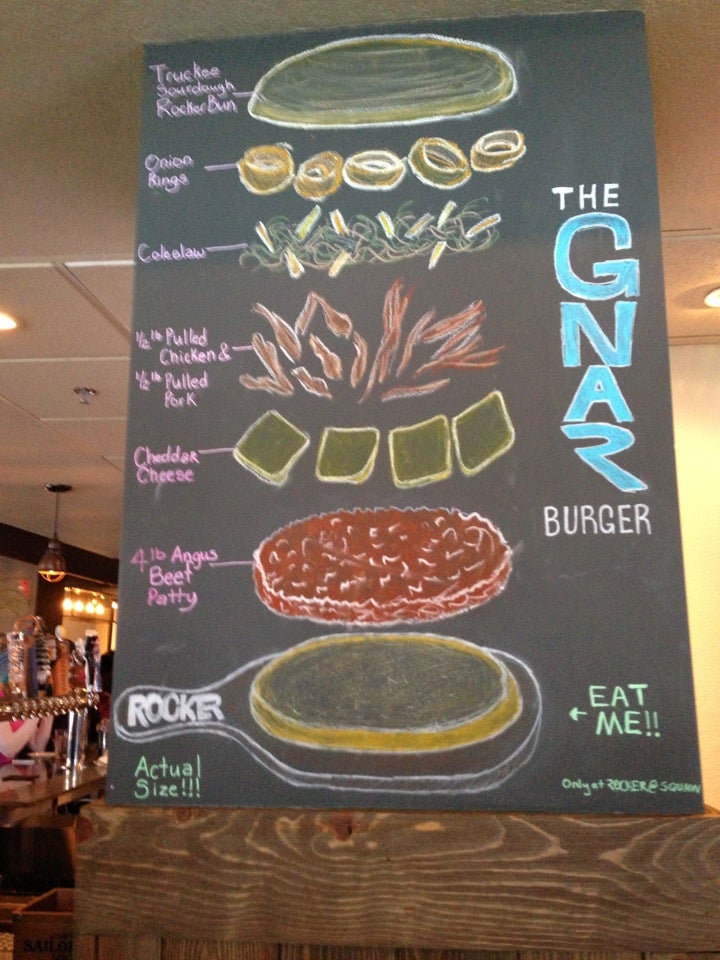 Truckee
Sourdough
Rocker Bun
Onion
Rings
Coleslaw
1/2 lb Pulled
Chicken &
1/2 lb Pulled
Pork
Cheddar
Cheese
4 lb Angus
Beef
Patty
THE
GNAR
BURGER
ROCKER
EAT
ME!!
Actual
Size!!!
Only at ROCKER @ SQUAW
SAILO